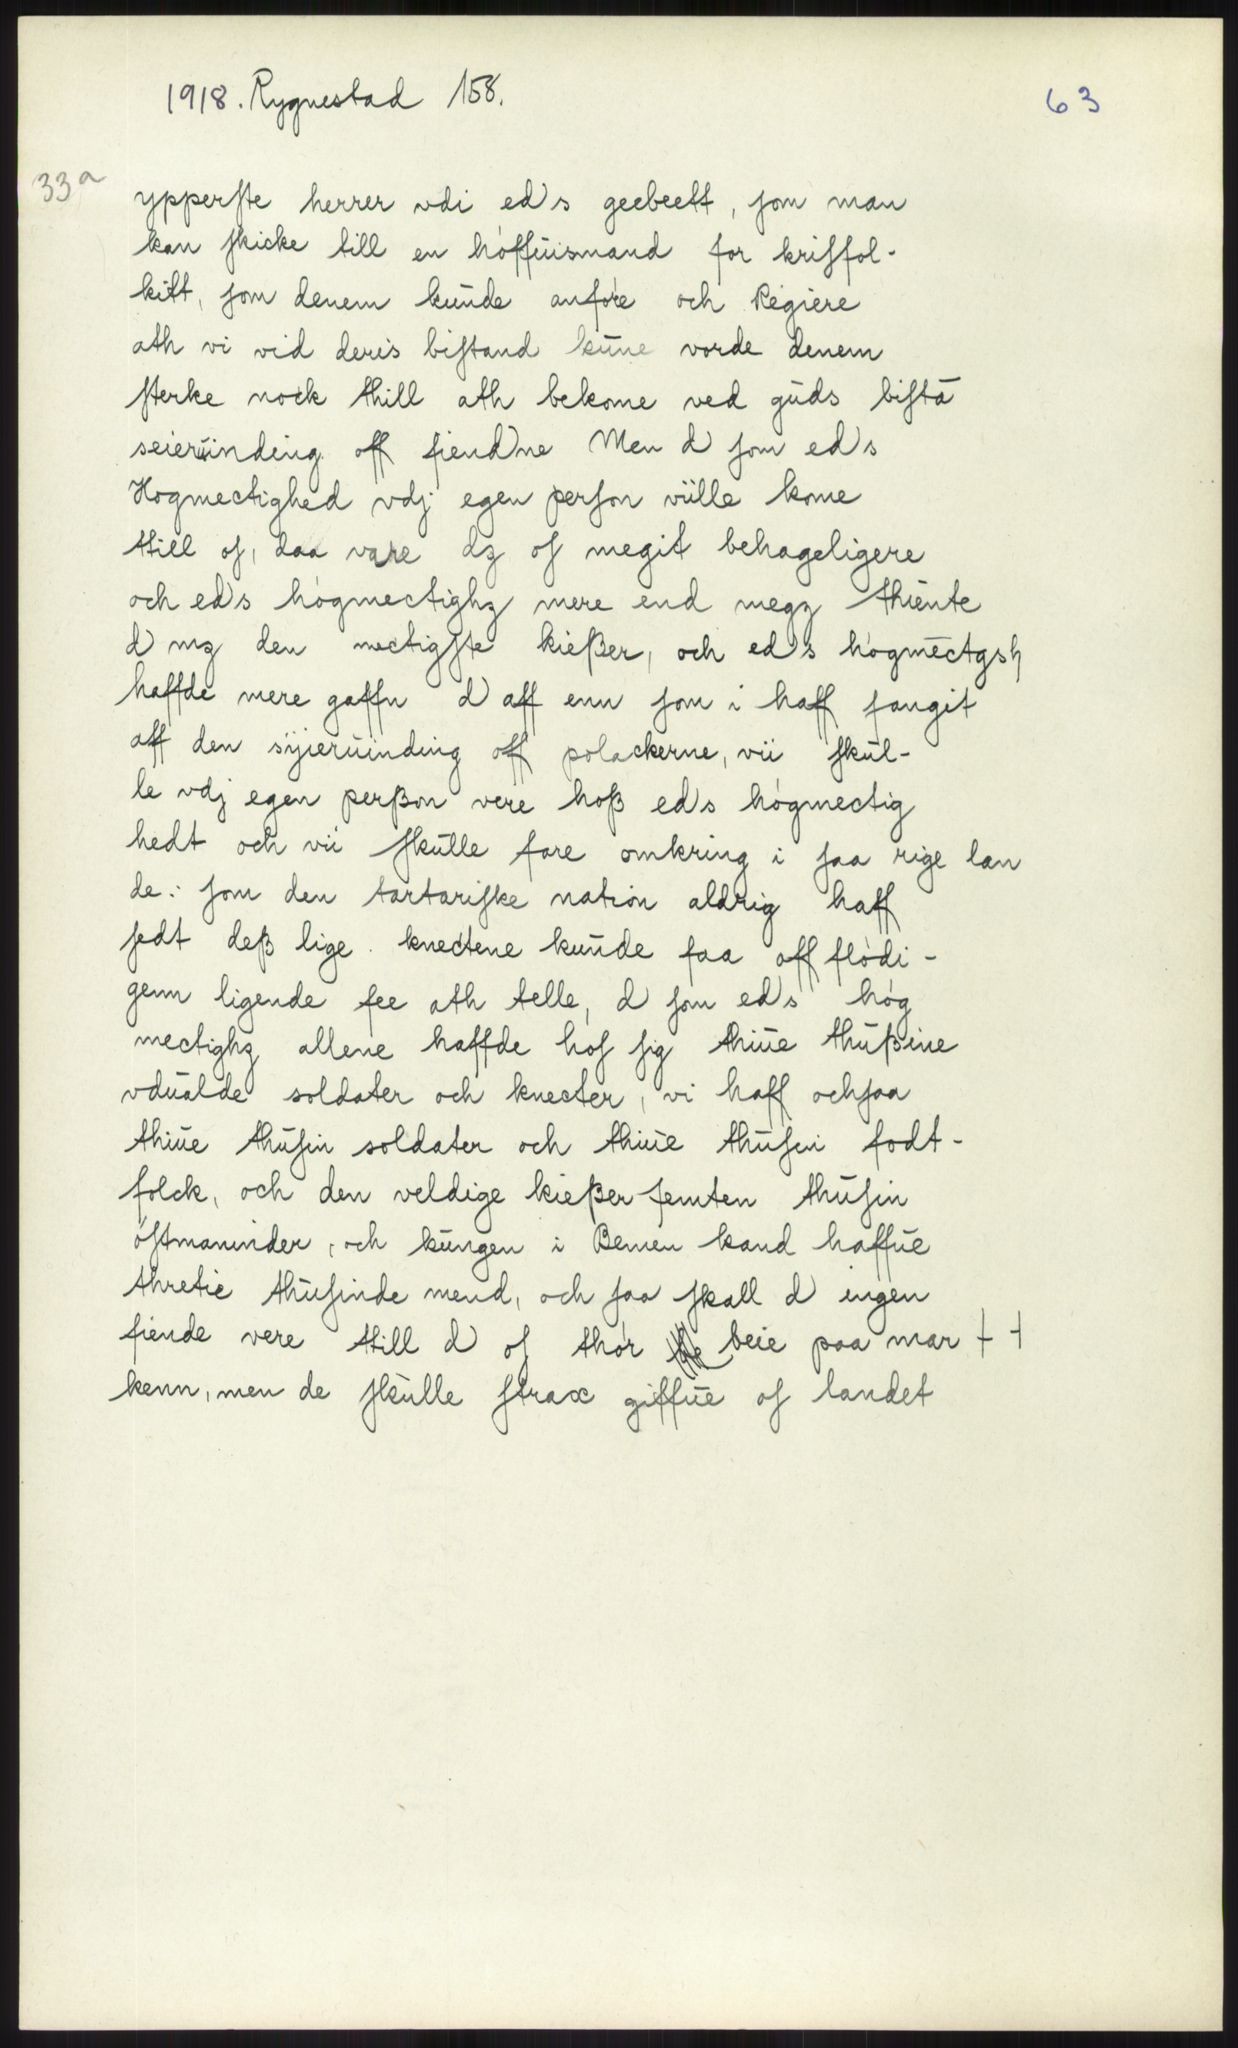 1918. Rygnestad 158.
63
33a
ypperſte herrer vdi ed's geebeett, ſom man
kan ſkicke till en hóffŭismand for kriſſfol-
kitt, ſom denem kŭnde anfóre och Regiere
ath vi vid deris biſtand kŭne vorde denem
ſterke nock thill ath bekome ved gŭds biſtā
seierŭinding off fiend'ne Men d ſom ed's
Hogmectighed vdj egen perſon viille kome
till oſ, daa vare dz oſ megit behageligere
och ed's hógmectighz mere end megz thiente
d mz den mectigſte kießer, och ed's hógmectgsh
haffde mere gaffn d aff enn ſom i haff fangit
aff den sÿierŭinding off polackerne, vii ſkŭl-
le vdj egen perßon vere hoß ed's hógmectig
hedt och vii ſkŭlle fare omkring i ſaa rige lan
de: ſom den tartariſke nation aldrig haff
ſedt deß lige. knectene kŭnde faa off flódi-
genn ligende fee ath telle, d ſom ed's hóg
mectighz allene haffde hoſ ſig thiŭe thŭßine
vdŭalde soldater och knecter, vi haff ochſaa
thiŭe thŭſin soldater och thiŭe thŭſen fodt-
folck, och den veldige kießer femten thŭſin
óſtmaninder, och kŭngen i Bemen kand haffŭe
thretie thŭſinde mend, och ſaa ſkall d ingen
fiende vere till d oſ thór beie paa mar
kenn, men de ſkŭlle ſtrax giffŭe oſ landet